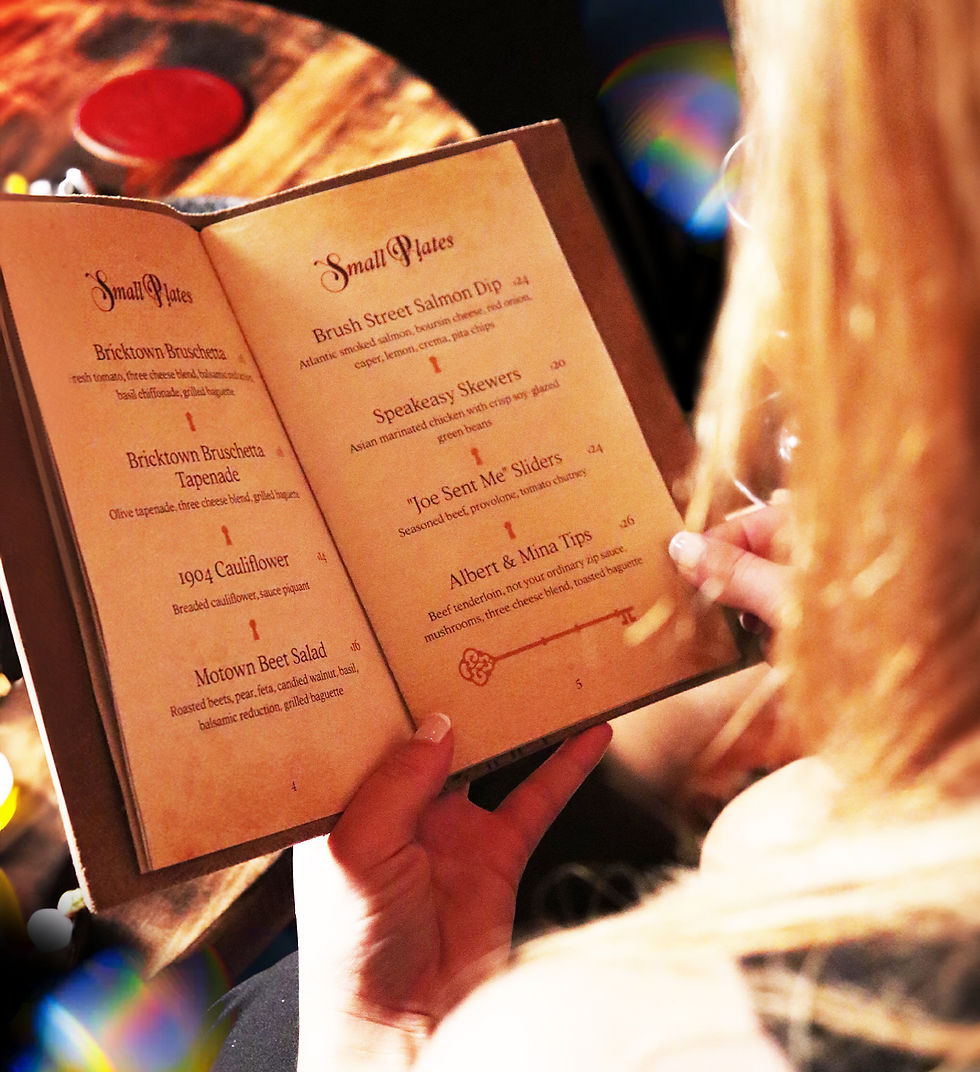 Small Plates
Bricktown Bruschetta
fresh tomato, three cheese blend, balsamic reduction,
basil chiffonade, grilled baguette
Bricktown Bruschetta
Tapenade
Olive tapenade, three cheese blend, grilled baguette
1904 Cauliflower 14
Breaded cauliflower, sauce piquant
Motown Beet Salad 16
Roasted beets, pear, feta, candied walnut, basil,
balsamic reduction, grilled baguette
4
Small Plates
Brush Street Salmon Dip 24
Atlantic smoked salmon, boursin cheese, red onion,
caper, lemon, crema, pita chips
Speakeasy Skewers 20
Asian marinated chicken with crisp soy glazed
green beans
"Joe Sent Me" Sliders 24
Seasoned beef, provolone, tomato chutney
Albert & Mina Tips 26
Beef tenderloin, not your ordinary zip sauce,
mushrooms, three cheese blend, toasted baguette
5